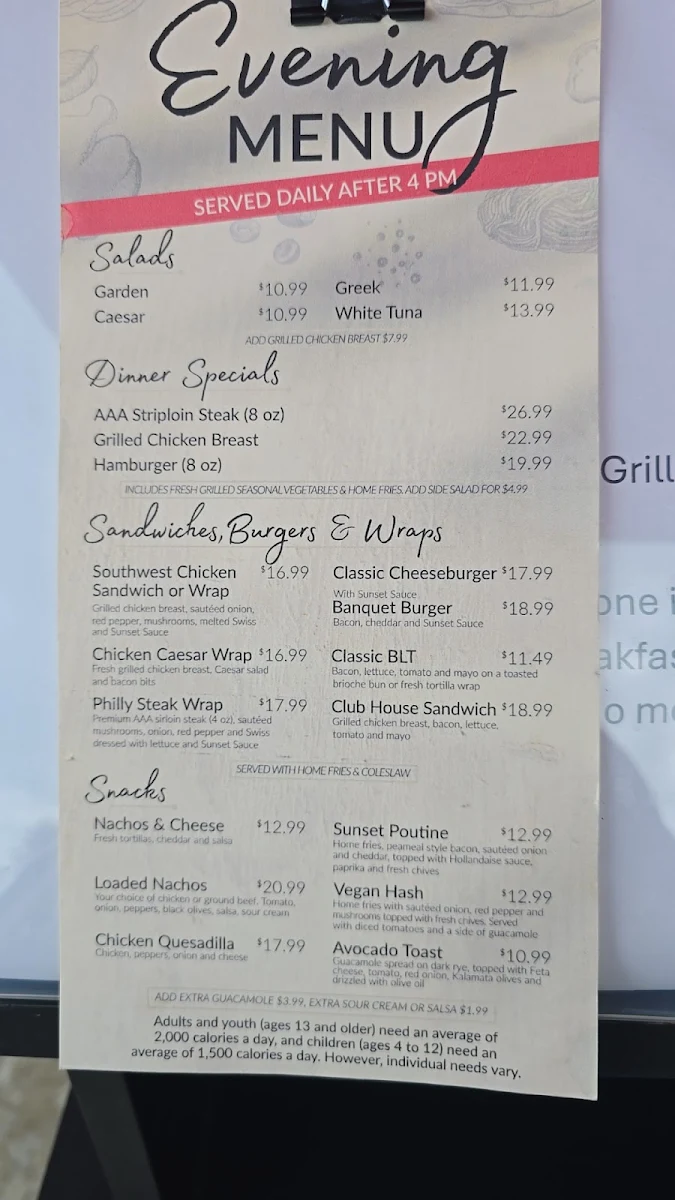 Evening
MENU
SERVED DAILY AFTER 4 PM
Salads
Garden $10.99
Caesar $10.99
Greek $11.99
White Tuna $13.99
ADD GRILLED CHICKEN BREAST $7.99
Dinner Specials
AAA Striploin Steak (8 oz) $26.99
Grilled Chicken Breast $22.99
Hamburger (8 oz) $19.99
INCLUDES FRESH GRILLED SEASONAL VEGETABLES & HOME FRIES. ADD SIDE SALAD FOR $4.99
Sandwiches, Burgers & Wraps
Southwest Chicken $16.99
Sandwich or Wrap
Grilled chicken breast, sautéed onion,
red pepper, mushrooms, melted Swiss
and Sunset Sauce
Chicken Caesar Wrap $16.99
Fresh grilled chicken breast, Caesar salad
and bacon bits
Philly Steak Wrap $17.99
Premium AAA sirloin steak (4 oz), sautéed
mushrooms, onion, red pepper and Swiss
dressed with lettuce and Sunset Sauce
Classic Cheeseburger $17.99
With Sunset Sauce
Banquet Burger $18.99
Bacon, cheddar and Sunset Sauce
Classic BLT $11.49
Bacon, lettuce, tomato and mayo on a toasted
brioche bun or fresh tortilla wrap
Club House Sandwich $18.99
Grilled chicken breast, bacon, lettuce,
tomato and mayo
SERVED WITH HOME FRIES & COLESLAW
Snacks
Nachos & Cheese $12.99
Fresh tortillas, cheddar and salsa
Loaded Nachos $20.99
Your choice of chicken or ground beef. Tomato,
onion, peppers, black olives, salsa, sour cream
Chicken Quesadilla $17.99
Chicken, peppers, onion and cheese
Sunset Poutine $12.99
Home fries, peameal style bacon, sautéed onion
and cheddar, topped with Hollandaise sauce,
paprika and fresh chives
Vegan Hash $12.99
Home fries with sautéed onion, red pepper and
mushrooms topped with fresh chives. Served
with diced tomatoes and a side of guacamole
Avocado Toast $10.99
Guacamole spread on dark rye, topped with Feta
cheese, tomato, red onion, Kalamata olives and
drizzled with olive oil
ADD EXTRA GUACAMOLE $3.99, EXTRA SOUR CREAM OR SALSA $1.99
Adults and youth (ages 13 and older) need an average of
2,000 calories a day, and children (ages 4 to 12) need an
average of 1,500 calories a day. However, individual needs vary.
Grill
one i
akfas
o mo